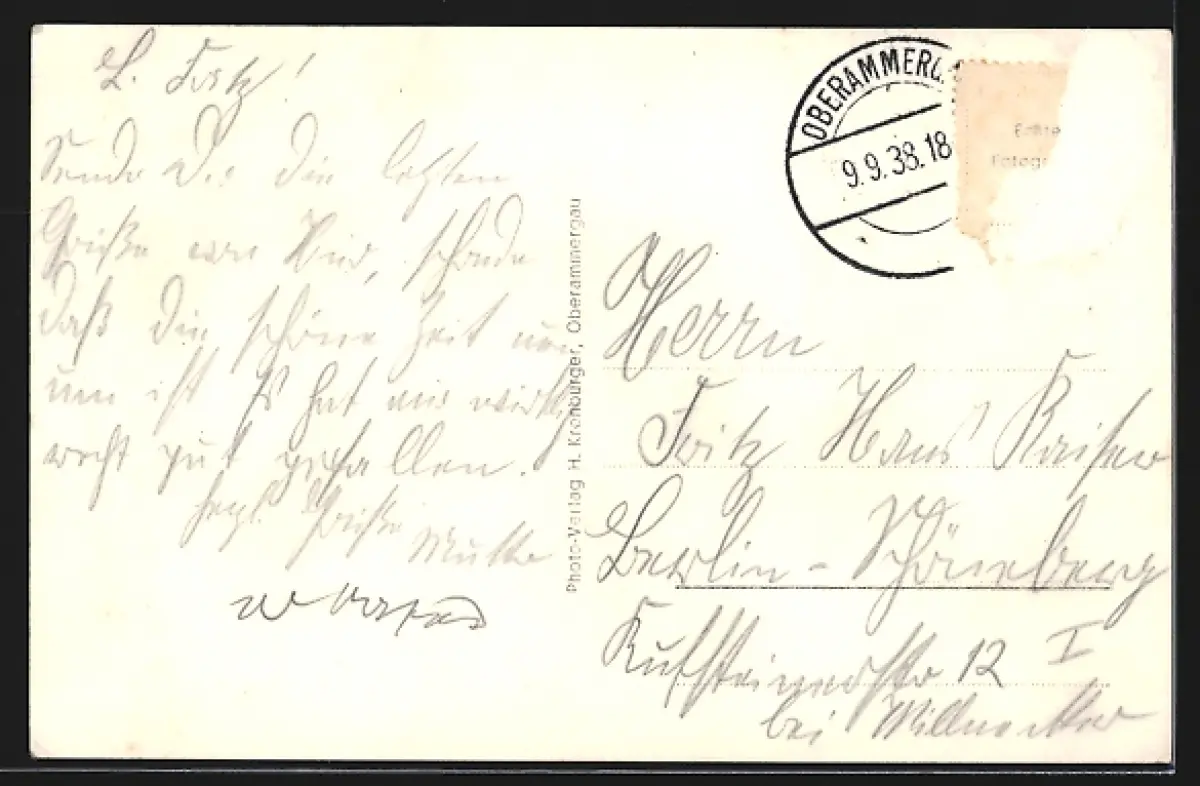 L. Fritz!
Sende Dir die letzten
Grüße von hier, schade
daß die schöne Zeit nun
um ist. Es hat mir wirklich
recht gut gefallen.
herzl. Grüße Mutter
Photo-Verlag H. Kronburger, Oberammergau
OBERAMMERG
9.9.38.18
Echte
Fotogr
Herrn
Fritz Hans Kaiser
Berlin - Schöneberg
Kufsteinerstr 12 I
bei